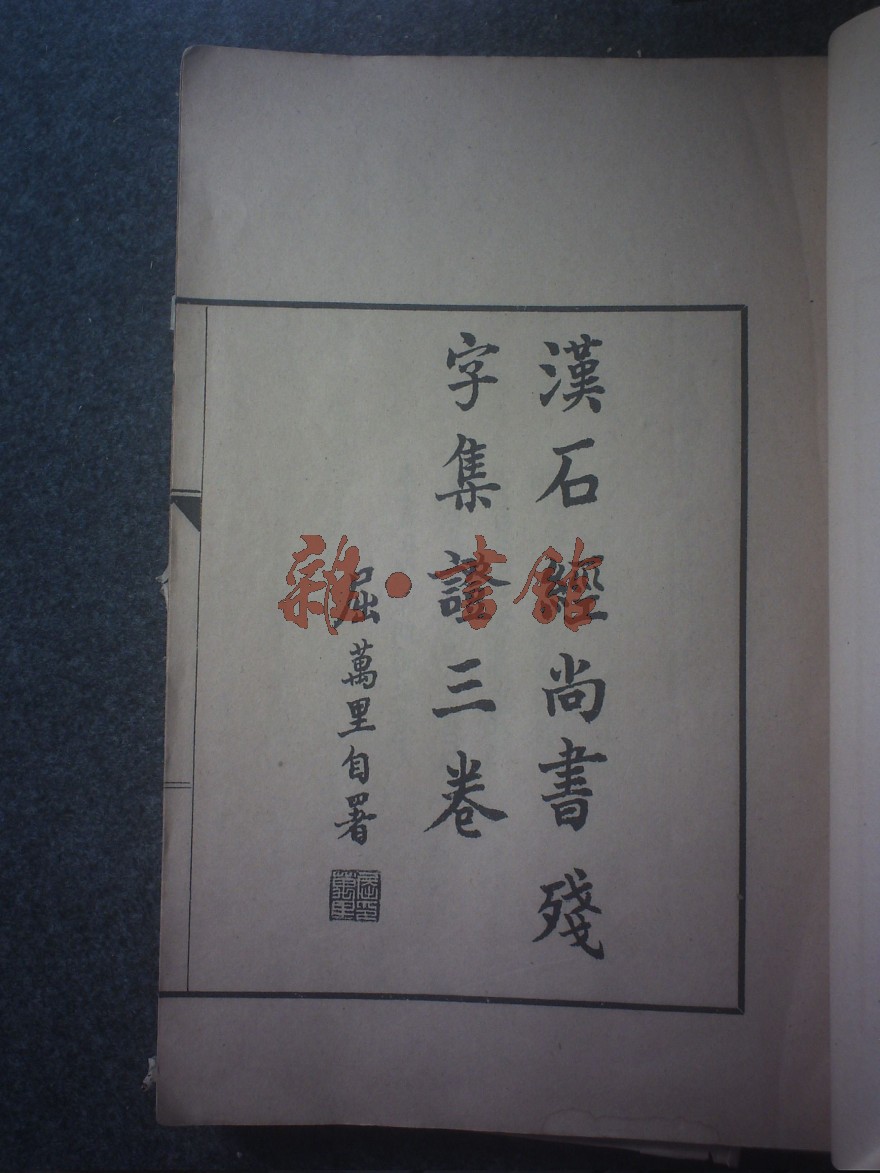 漢石經尚書殘
字集證三卷
屈萬里自署
雜·書館